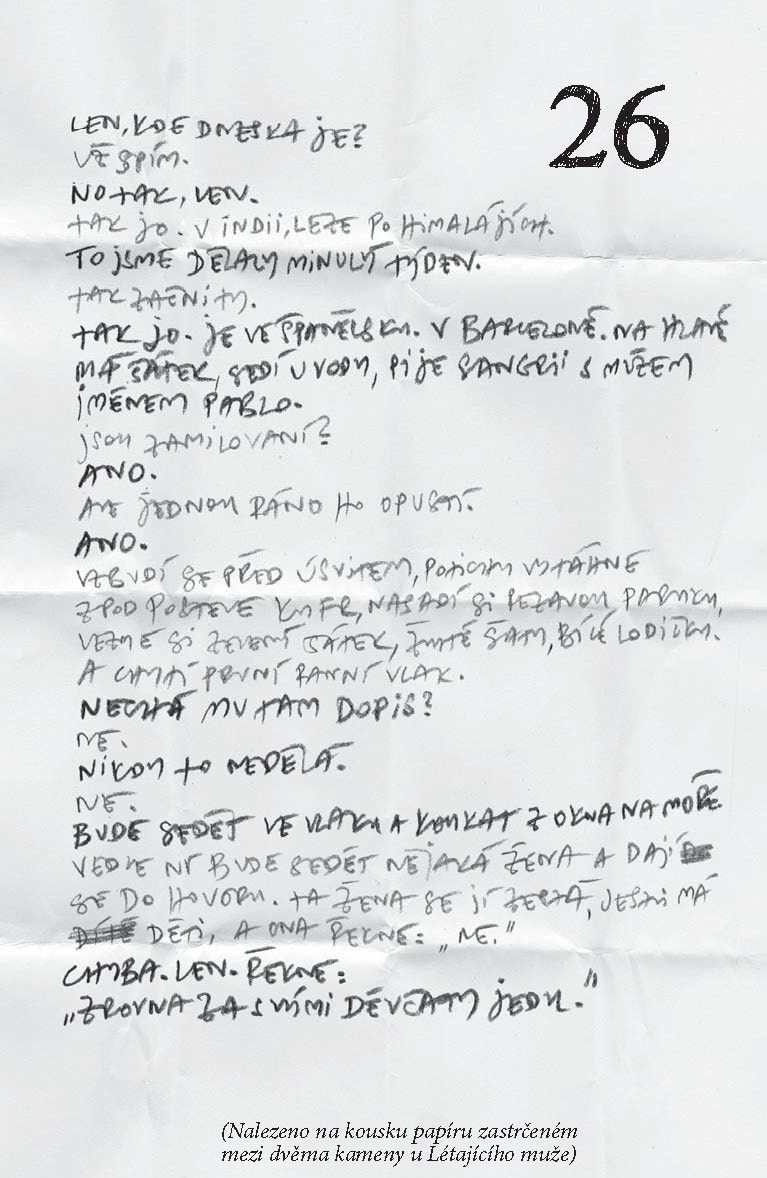 26
LEN, KDE DNESKA JE?
UŽ SPÍM.
NO TAK, LEN.
TAK JO. V INDII, LEZE PO HIMALÁJÍCH.
TO JSME DĚLALY MINULÝ TÝDEN.
TAK ZAČNI TY.
TAK JO. JE VE ŠPANĚLSKU. V BARCELONĚ. NA HLAVĚ
MÁ ŠÁTEK, SEDÍ U VODY, PIJE SANGRII S MUŽEM
JMÉNEM PABLO.
JSOU ZAMILOVANÍ?
ANO.
ALE JEDNOU RÁNO HO OPUSTÍ.
ANO.
VZBUDÍ SE PŘED ÚSVITEM, POTICHU VYTÁHNE
ZPOD POSTELE KUFR, NASADÍ SI REZAVOU PARUKU,
VEZME SI ZELENÝ ŠÁTEK, ŽLUTÉ ŠATY, BÍLÉ LODIČKY.
A CHYTÍ PRVNÍ RANNÍ VLAK.
NECHÁ MU TAM DOPIS?
NE.
NIKDY TO NEDĚLÁ.
NE.
BUDE SEDĚT VE VLAKU A KOUKAT Z OKNA NA MOŘE
VEDLE NÍ BUDE SEDĚT NĚJAKÁ ŽENA A DAJÍ
SE DO HOVORU. TA ŽENA SE JÍ ZEPTÁ, JESTLI MÁ
DĚTI, A ONA ŘEKNE: „NE."
CHYBA. LEN. ŘEKNE:
„ZROVNA ZA SVÝMI DĚVČATY JEDU."
(Nalezeno na kousku papíru zastrčeném
mezi dvěma kameny u Létajícího muže)